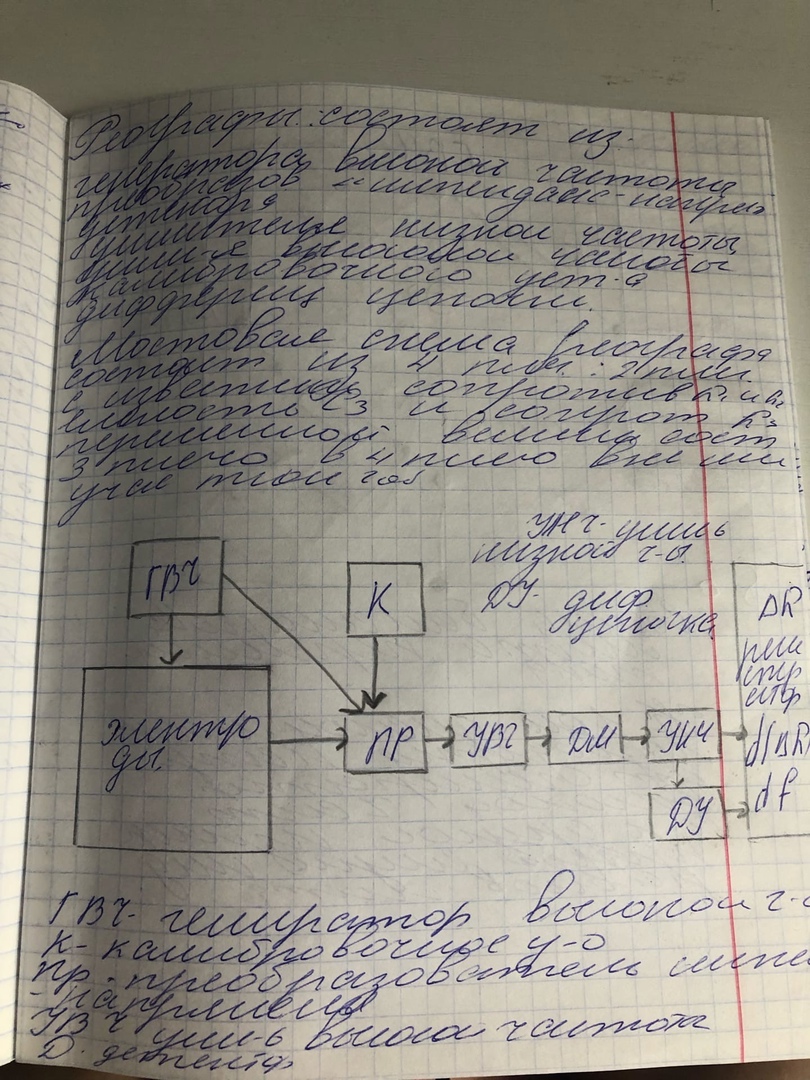 Реографы: состоят из:
генератора высокой частоты
преобразов "импеданс-напряж"
детектора
усилителя низкой частоты
усил-я высокой частоты
калибровочного уст-а
дифференц цепочки.
Мостовая схема реографа
состоит из 4 плеч: 2 плеч.
с известным сопротив R1 и R2
емкость C3 и сопрот R3
переменной велич сост
3 плечо в 4 плечо вкл
участ
УНЧ-усил-ь
низкой ч-ы.
ДУ- диф
цепочка
ГВЧ
К
ΔR
реги
стр
атор
электро
ды
ПР
УВЧ
ДМ
УНЧ
d(ΔR)
ДУ
dt
ГВЧ- генератор высокой ч-
К- калибровочное у-о
Пр- преобразователь импе
-напряжения
УВЧ усил-ь высокой частота
Д. детектор